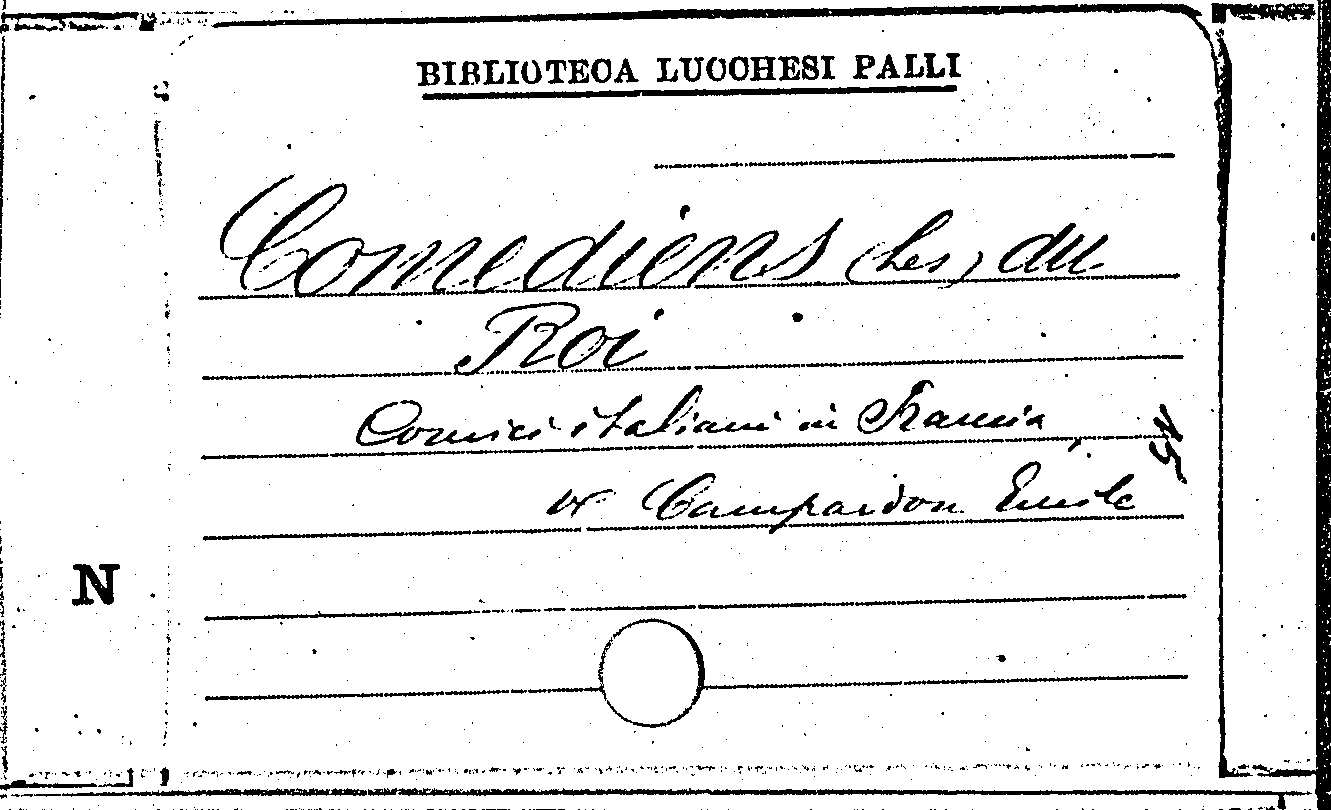 BIBLIOTECA LUCCHESI PALLI
Comediens (Les) du
Roi
Comici italiani in Francia,
15
v Campardon Emile
N